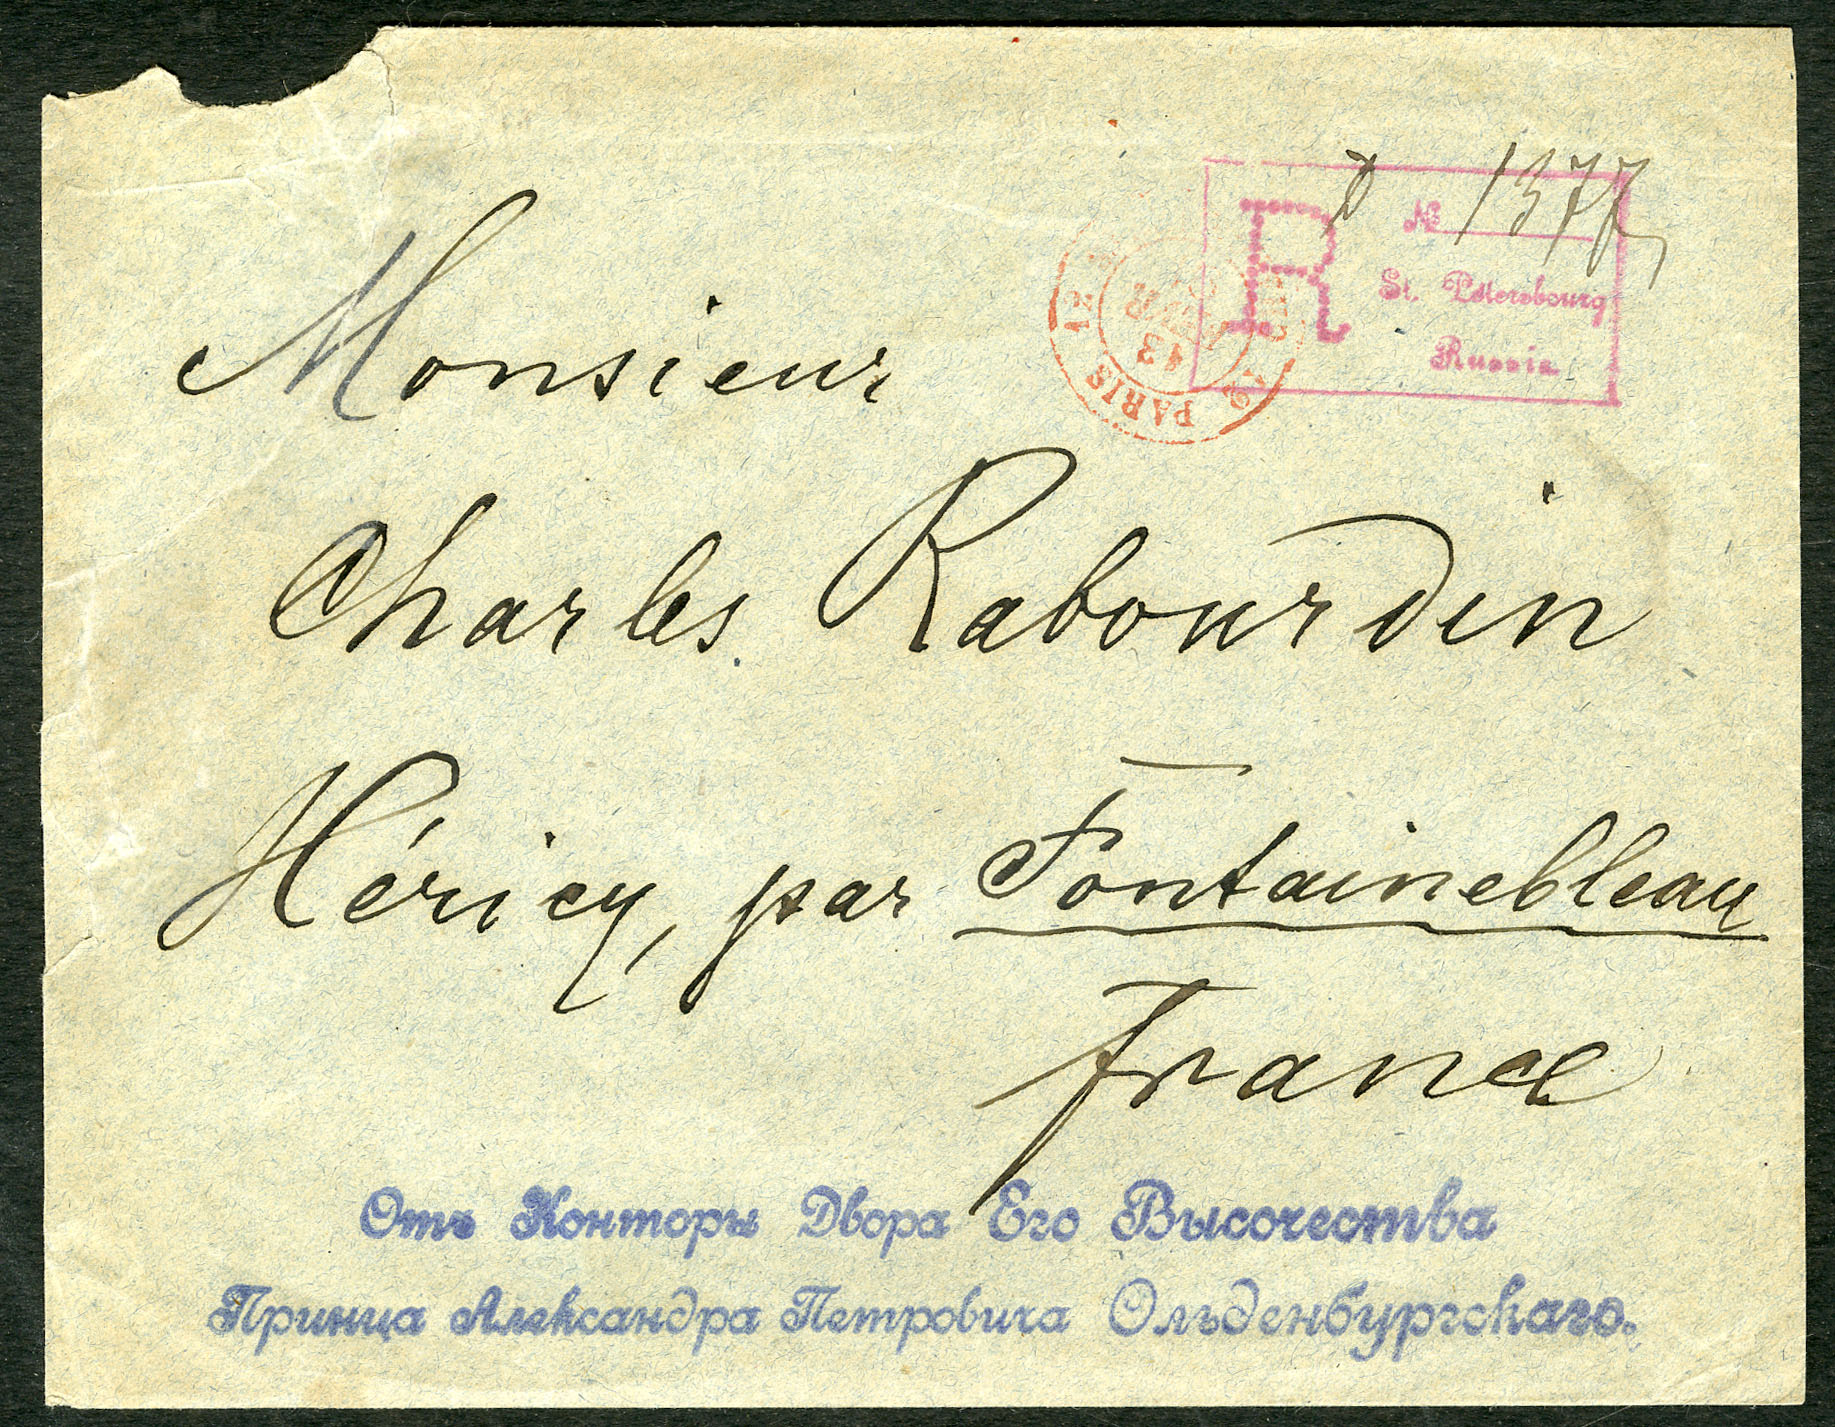 № 1377
R
St. Petersbourg
Russie
PARIS
12
13
AVR
Monsieur
Charles Rabourdin
Héricy, par Fontainebleau
France
Отъ Конторы Двора Его Высочества
Принца Александра Петровича Ольденбургскаго.